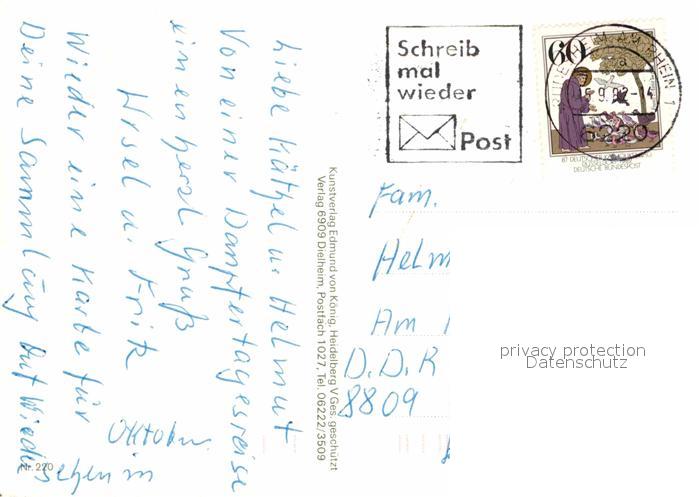 Liebe Käthel u. Helmut
Von einer Dampfertagesreise
einen herzl Gruß
Ursel u. Fritz
Wieder eine Karte für
Deine Sammlung Auf Wieder
sehen im
Oktober
Nr. 220
Kunstverlag Edmund von König, Heidelberg V Ges. geschützt
Verlag 6909 Dielheim, Postfach 1027, Tel. 06222/3509
Schreib
mal
wieder
Post
60
RÜDESHEIM AM RHEIN 1
a
9.82-14
6220
87. DEUTSCHER
DEUTSCHE BUNDESPOST
Fam.
Helm
Am
D.D.R
8809
privacy protection
Datenschutz